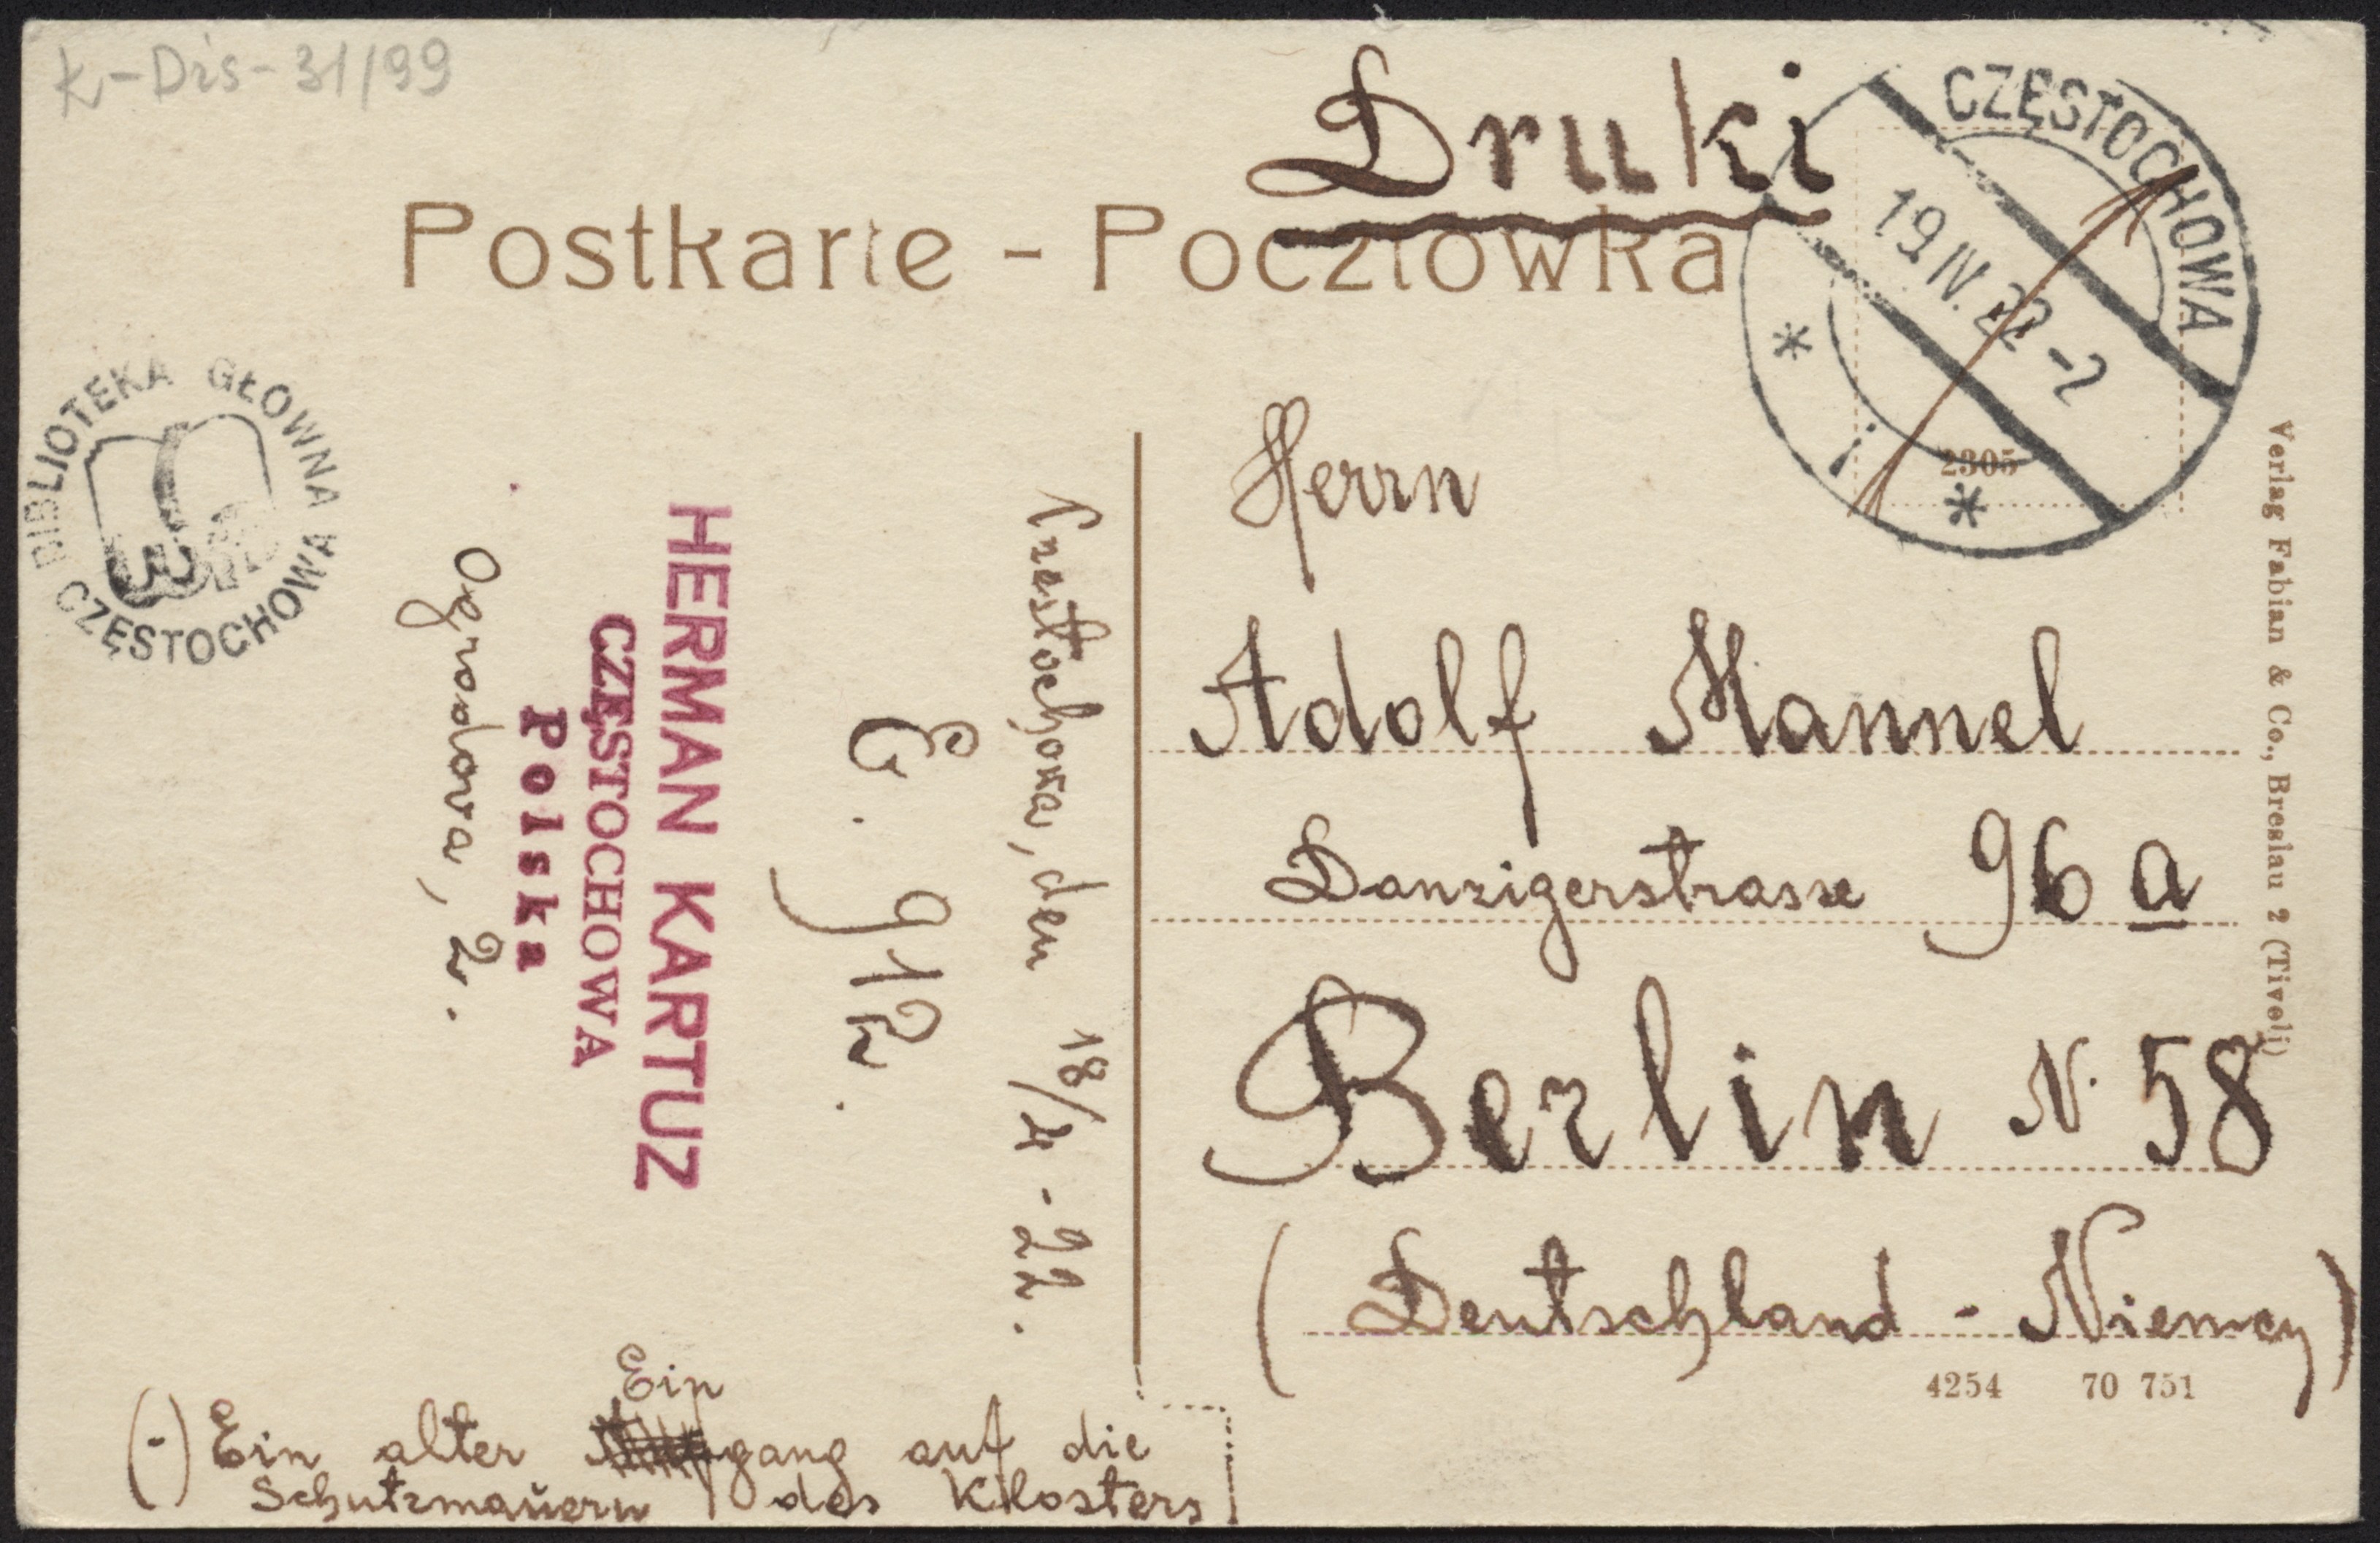 K-Dis-31/99
Druki
Postkarte - Pocztówka
CZĘSTOCHOWA
19 IV. 22 -2
* 1 *
2305
BIBLIOTEKA GŁÓWNA
WSP
CZĘSTOCHOWA
Herrn
Adolf Mannel
Danzigerstrasse 96 a
Berlin N. 58
(Deutschland - Niemcy)
4254 70 751
Verlag Fabian & Co., Breslau 2 (Tivoli)
Częstochowa, den 18/4 - 22.
E. 912.
HERMAN KARTUZ
CZĘSTOCHOWA
Polska
Ogrodowa, 2.
Ein
(-) Ein alter gang auf die
Schutzmauern des Klosters